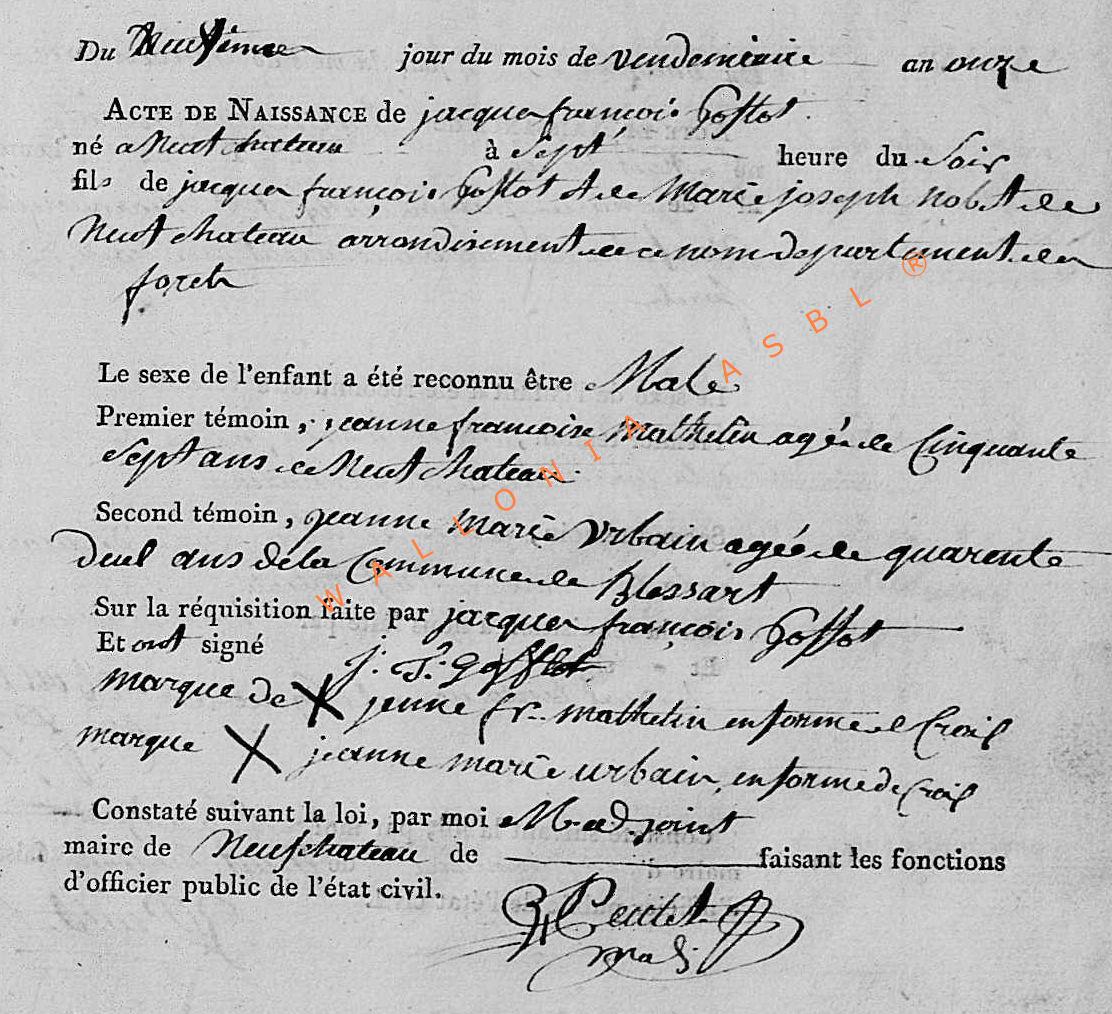 Du Neufième jour du mois de vendemiaire an onze
ACTE DE NAISSANCE de jacque françois Gofflot
né a Neufchateau à Sept heure du Soir
fils de jacque françois Gofflot et de Marie joseph nobet de
Neufchateau arrondisement de ce nom departement de
foret
Le sexe de l'enfant a été reconnu être Male
Premier témoin, jeanne françoise mathelin agée de Cinquante
Sept ans de Neufchateau
Second témoin, jeanne Marie Urbain agée de quarente
deux ans de la Commune de Blessart
Sur la réquisition faite par jacque françois Goffot
Et ont signé j. f. Gofflot
marque de X jenne fr. mathelin en forme de Croix
marque X jeanne marie urbain, en forme de Croix
Constaté suivant la loi, par moi adjoint
maire de Neufchateau de faisant les fonctions
d'officier public de l'état civil.
WALLONIA ASBL ®